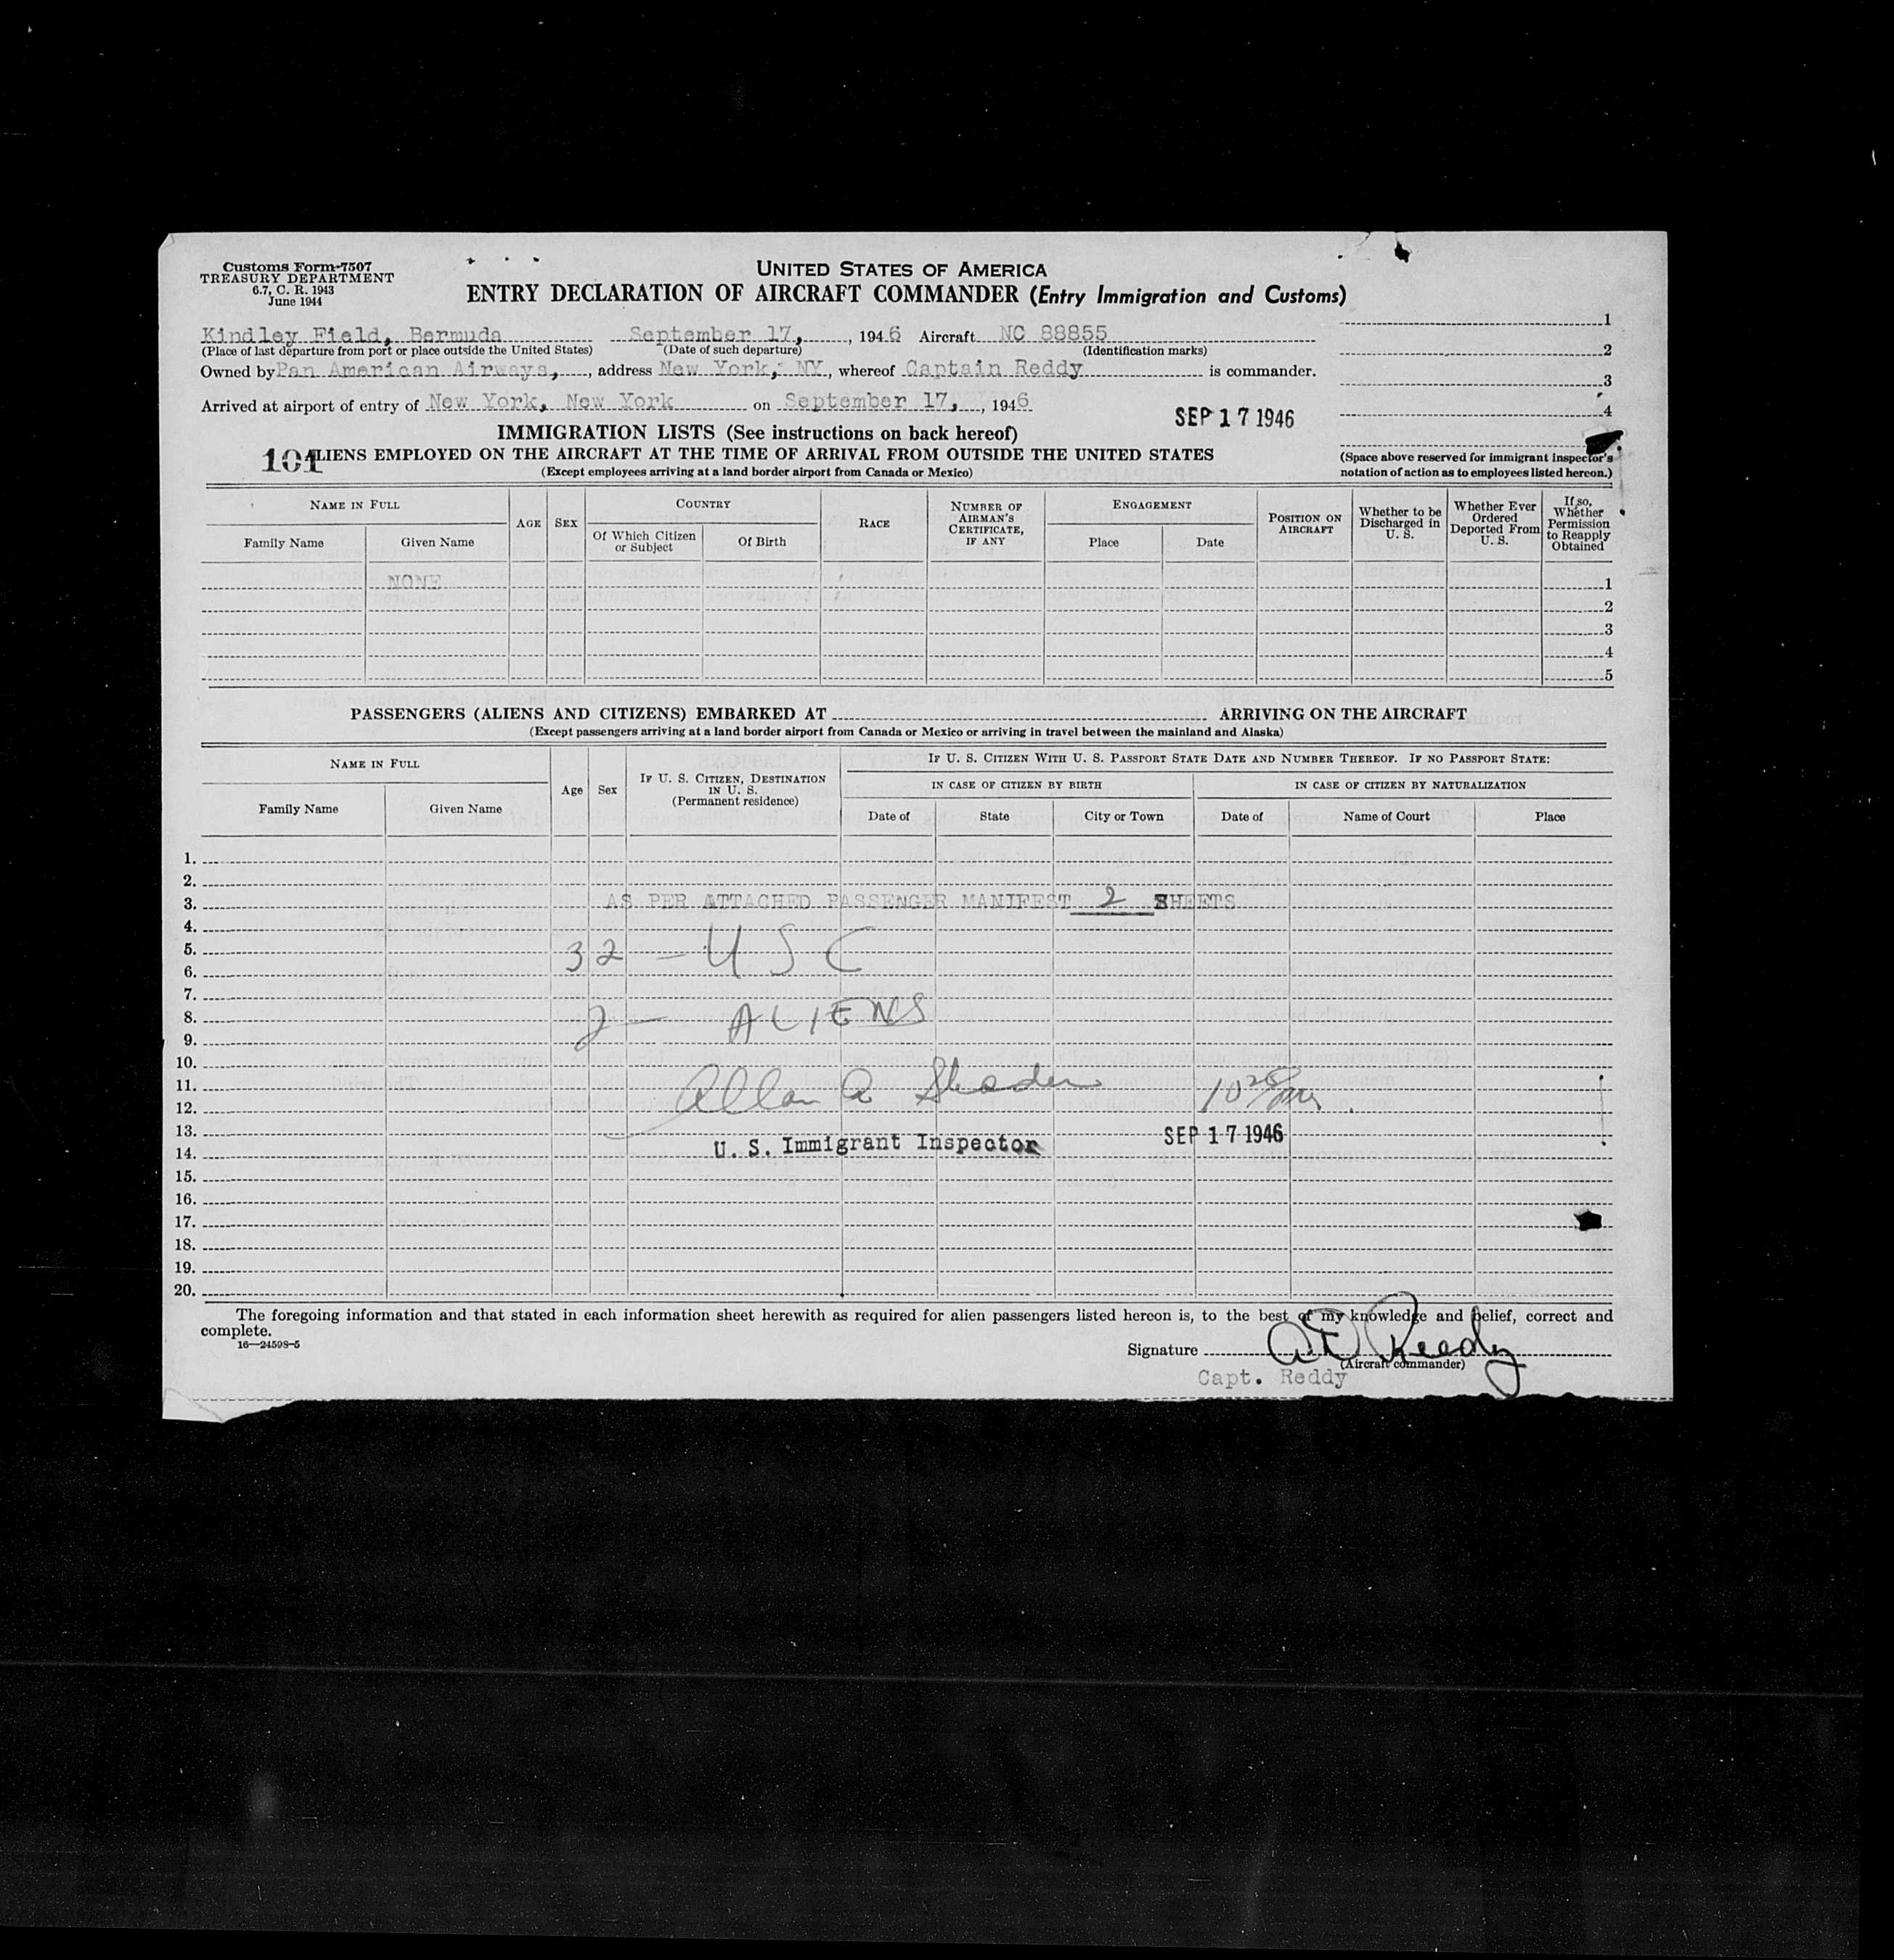 Customs Form-7507
TREASURY DEPARTMENT
6.7, C. R. 1943
June 1944
UNITED STATES OF AMERICA
ENTRY DECLARATION OF AIRCRAFT COMMANDER (Entry Immigration and Customs)
Kindley Field, Bermuda September 17, , 1946 Aircraft NC 88855
(Place of last departure from port or place outside the United States) (Date of such departure) (Identification marks)
Owned by Pan American Airways, , address New York, NY, whereof Captain Reddy is commander.
Arrived at airport of entry of New York, New York on September 17, , 1946
SEP 17 1946
1
2
3
4
(Space above reserved for immigrant inspector's
notation of action as to employees listed hereon.)
IMMIGRATION LISTS (See instructions on back hereof)
101
ALIENS EMPLOYED ON THE AIRCRAFT AT THE TIME OF ARRIVAL FROM OUTSIDE THE UNITED STATES
(Except employees arriving at a land border airport from Canada or Mexico)
NAME IN FULL
Family Name
Given Name
AGE
SEX
COUNTRY
Of Which Citizen
or Subject
Of Birth
RACE
NUMBER OF
AIRMAN'S
CERTIFICATE,
IF ANY
ENGAGEMENT
Place
Date
POSITION ON
AIRCRAFT
Whether to be
Discharged in
U. S.
Whether Ever
Ordered
Deported From
U. S.
If so,
Whether
Permission
to Reapply
Obtained
NONE 1
2
3
4
5
PASSENGERS (ALIENS AND CITIZENS) EMBARKED AT ARRIVING ON THE AIRCRAFT
(Except passengers arriving at a land border airport from Canada or Mexico or arriving in travel between the mainland and Alaska)
NAME IN FULL
Family Name
Given Name
Age
Sex
IF U. S. CITIZEN, DESTINATION
IN U. S.
(Permanent residence)
IF U. S. CITIZEN WITH U. S. PASSPORT STATE DATE AND NUMBER THEREOF. IF NO PASSPORT STATE:
IN CASE OF CITIZEN BY BIRTH
Date of
State
City or Town
IN CASE OF CITIZEN BY NATURALIZATION
Date of
Name of Court
Place
1.
2.
3. AS PER ATTACHED PASSENGER MANIFEST 2 SHEETS
4.
5. 32 - USC
6.
7.
8. 2 - ALIENS
9.
10.
11. Allan A
12.
13. SEP 17 1946
14. U. S. Immigrant Inspector
15.
16.
17.
18.
19.
20.
The foregoing information and that stated in each information sheet herewith as required for alien passengers listed hereon is, to the best of my knowledge and belief, correct and
complete.
16—24598-5
Signature Reedy
(Aircraft commander)
Capt. Reddy